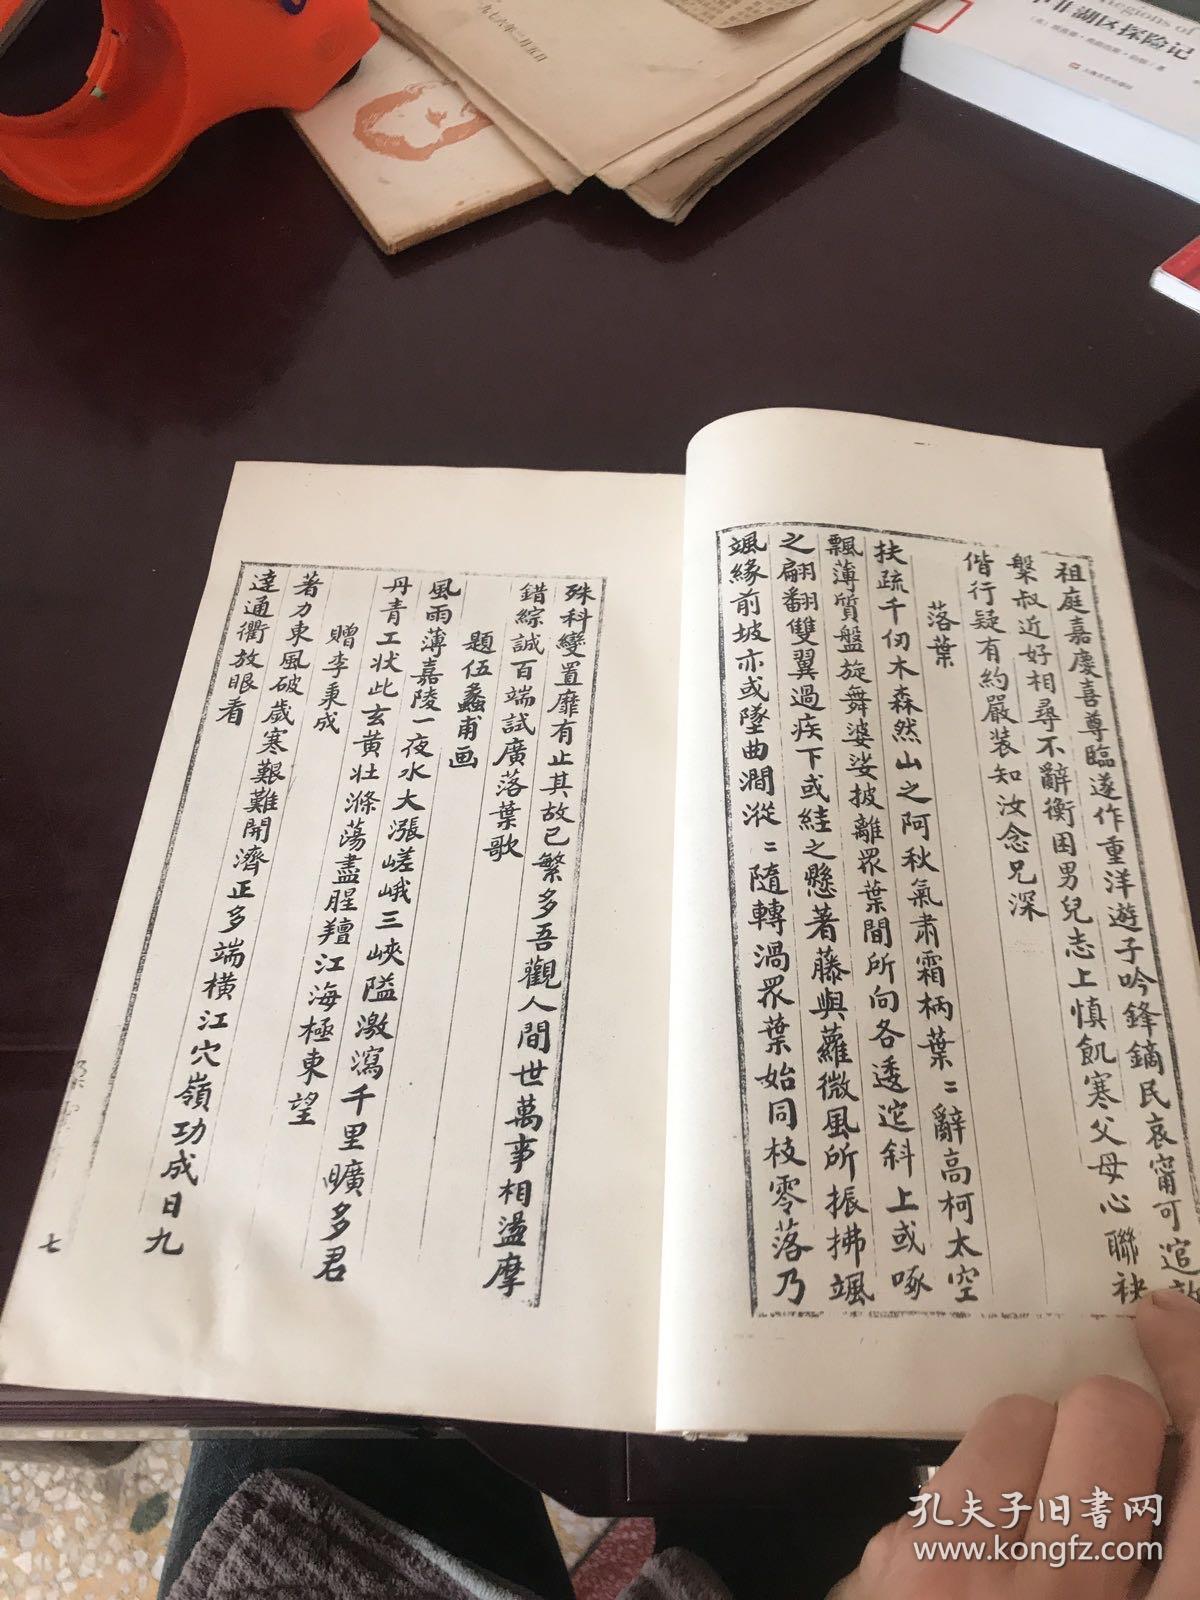 祖庭嘉慶喜尊臨遂作重洋遊子吟鋒鏑民哀甯可
槃叔近好相尋不辭衡困男兒志上慎飢寒父母心聯袂
偕行疑有約嚴裝知汝念兄深
落葉
扶疏千仞木森然山之阿秋氣肅霜柄葉〻辭高柯太空
飄薄質盤旋舞婆娑披離眾葉間所向各透迱斜上或啄
之翩翻雙翼過疾下或絓之懸著藤與蘿微風所振拂颯
颯緣前坡亦或墜曲澗漎〻隨轉渦眾葉始同枝零落乃
殊科變置靡有止其故已繁多吾觀人間世萬事相盪摩
錯綜誠百端試廣落葉歌
題伍蠡甫画
風雨薄嘉陵一夜水大漲嵯峨三峽隘激瀉千里曠多君
丹青工狀此玄黄壯滌蕩盡腥羶江海極東望
贈李秉成
著力東風破歲寒艱難開濟正多端橫江穴嶺功成日九
達通衢放眼看
七
一九七六年二月五日
中非湖区探险记
上海文艺出版社
孔夫子旧书网
www.kongfz.com